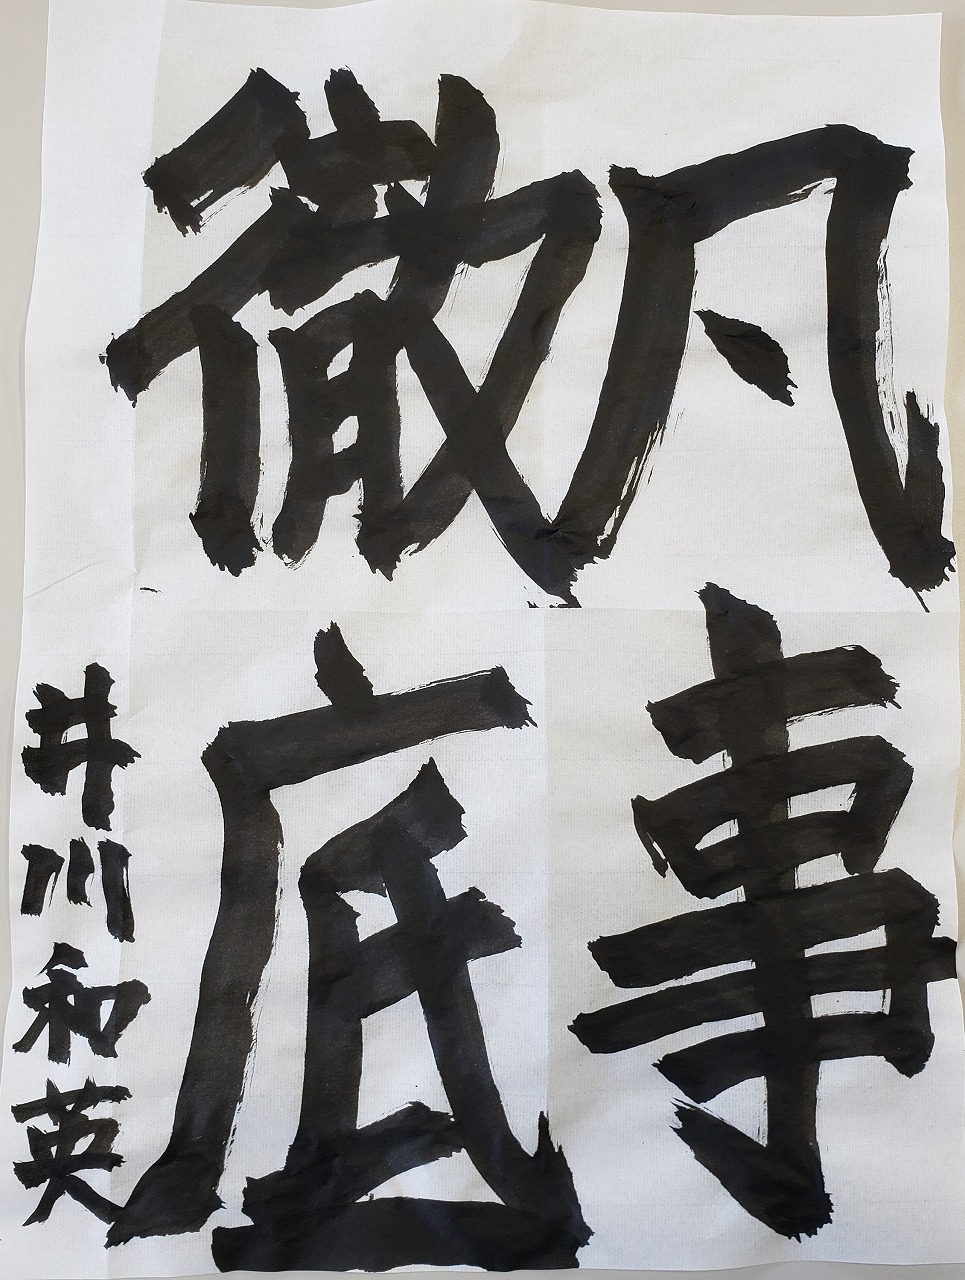 凡事
徹底
井川和英